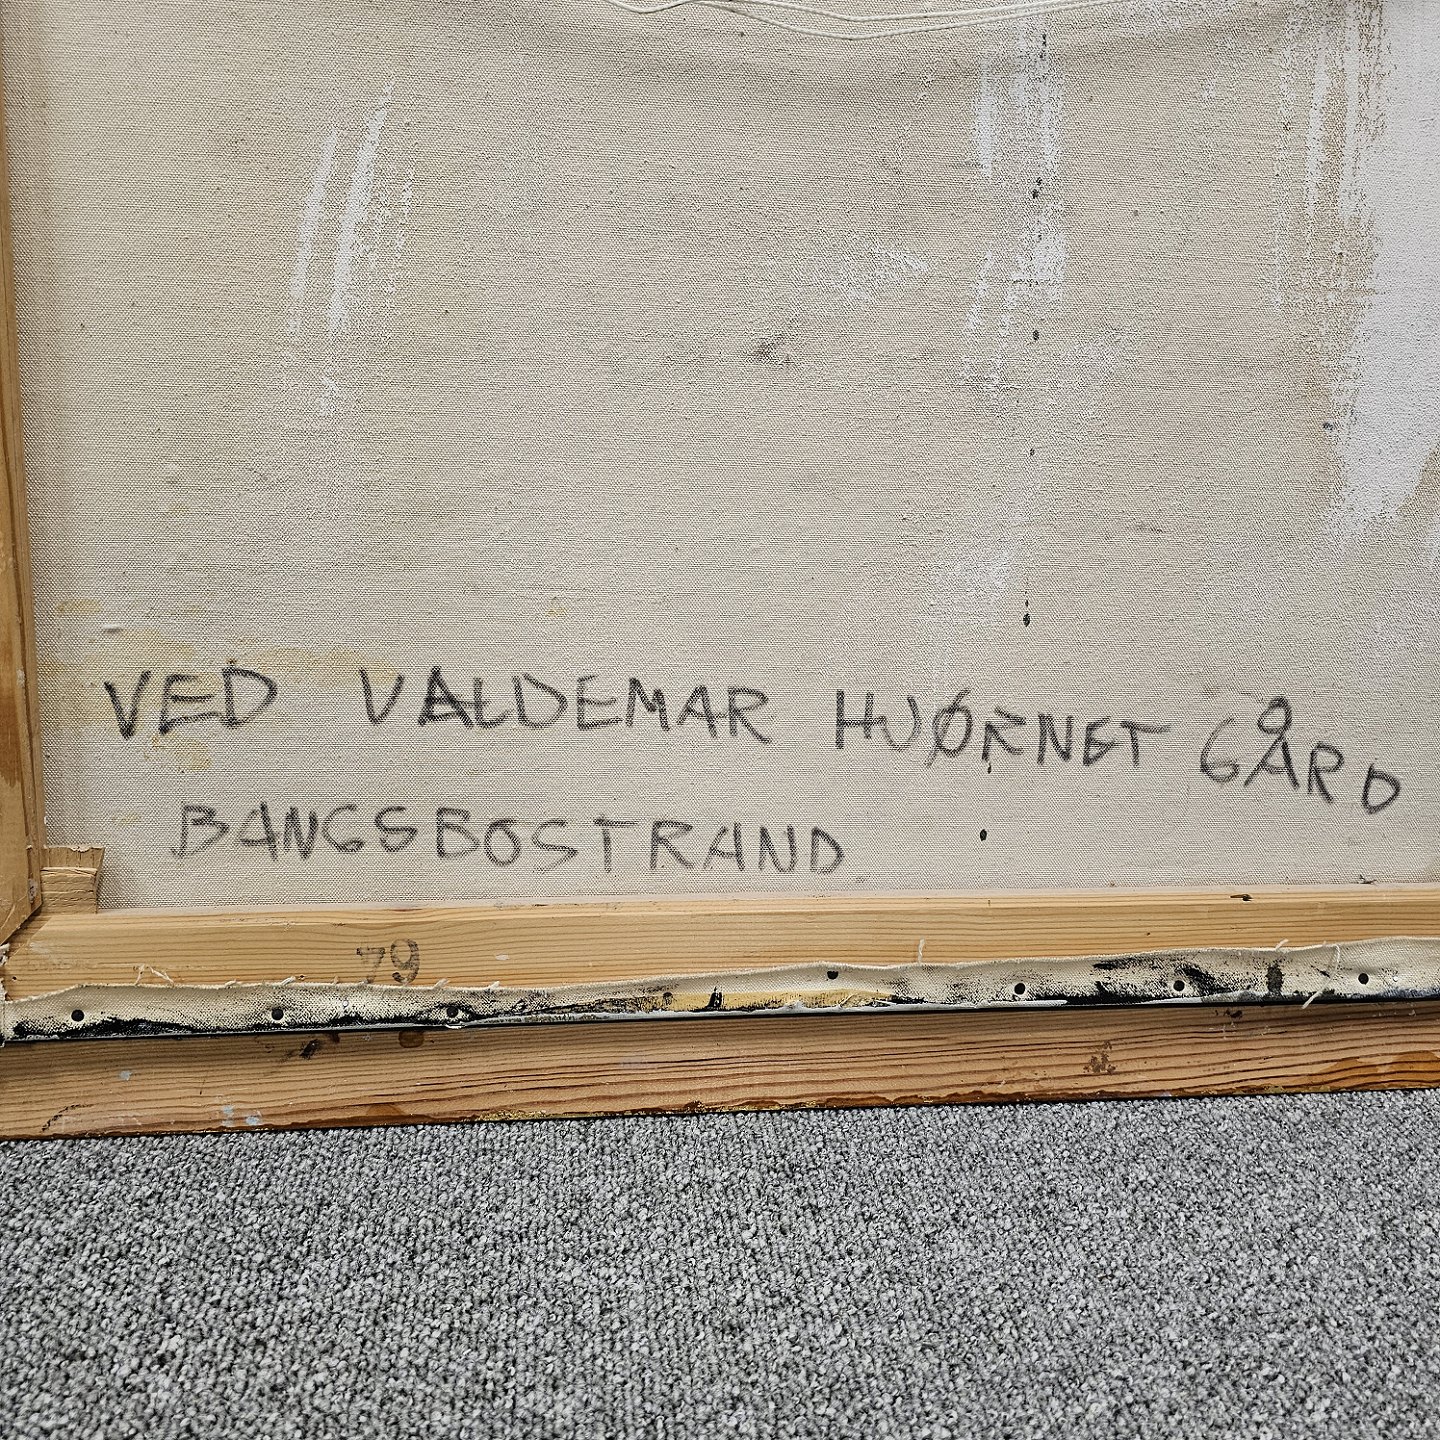 VED VALDEMAR HJØRNET GÅRD
BANGSBOSTRAND
79